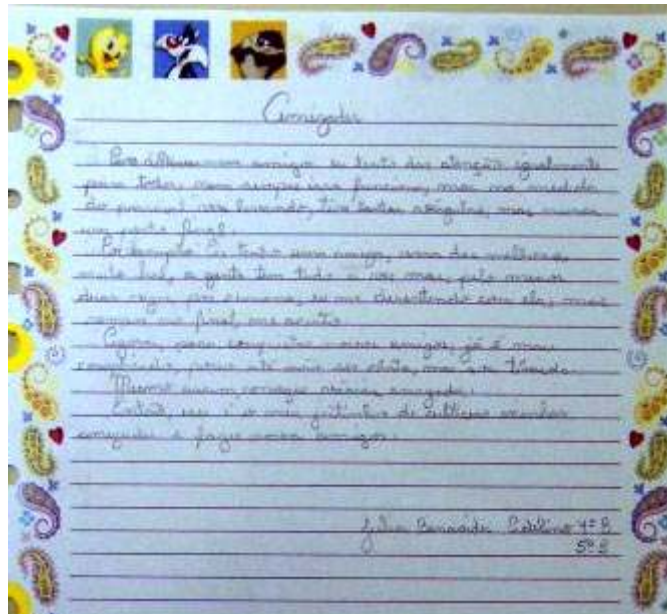 Amizades
amigos eu tento dar atenção igualmente
para todos, nem sempre isso funciona, mas na medida
do possível vou levando, tive tantas vírgulas, mas nunca
um ponto final.
Por exemplo: Eu tenho uma amiga, uma das melhores,
a gente tem tudo a ver mas, pelo menos
duas vezes por semana, eu me desentendo com ela, mas
sempre no final, me acerto.
Agora, para conquistar novos amigos, já é mais
complicado, posso até não ser chata, mas sou tímida.
Mesmo assim, consigo várias amizades.
Então, esse é o meu jeitinho de cultivar minhas
amizades e fazer novos amigos.
4ª B
5ª B